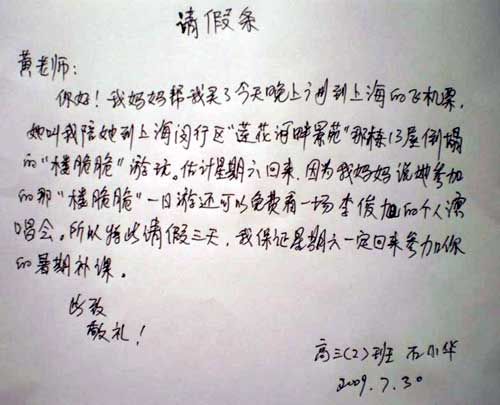 请假条
黄老师:
你好!我妈妈帮我买了今天晚上广州到上海的飞机票,
她叫我陪她到上海闵行区"莲花河畔景苑"那栋13层倒塌
的"楼脆脆"游玩。估计星期六回来,因为我妈妈说她参加
的那"楼脆脆"一日游还可以免费看一场李俊旭的个人演
唱会。所以特此请假三天,我保证星期六一定回来参加你
的暑期补课。
此致
敬礼!
高三(2)班 石小华
2009.7.30